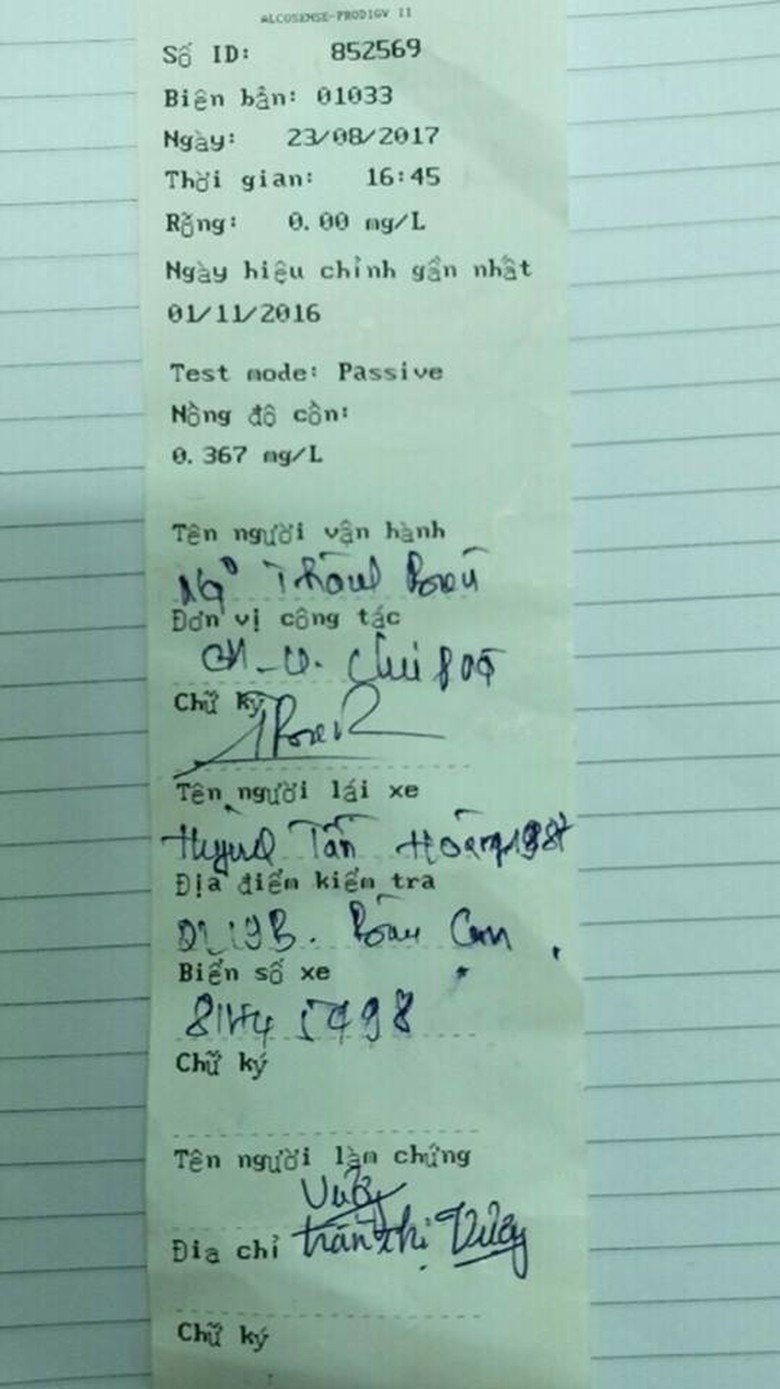 ALCOSENSE-PRODIGY II
Số ID: 852569
Biên bản: 01033
Ngày: 23/08/2017
Thời gian: 16:45
Rỗng: 0.00 mg/L
Ngày hiệu chỉnh gần nhất
01/11/2016
Test mode: Passive
Nồng độ cồn:
0.367 mg/L
Tên người vận hành
Đơn vị công tác
Chữ ký
Tên người lái xe
Tấn Hoàng 1987
Địa điểm kiểm tra
QL19B.
Biển số xe
81H4 5498
Chữ ký
Tên người làm chứng
Địa chỉ trần thị
Chữ ký